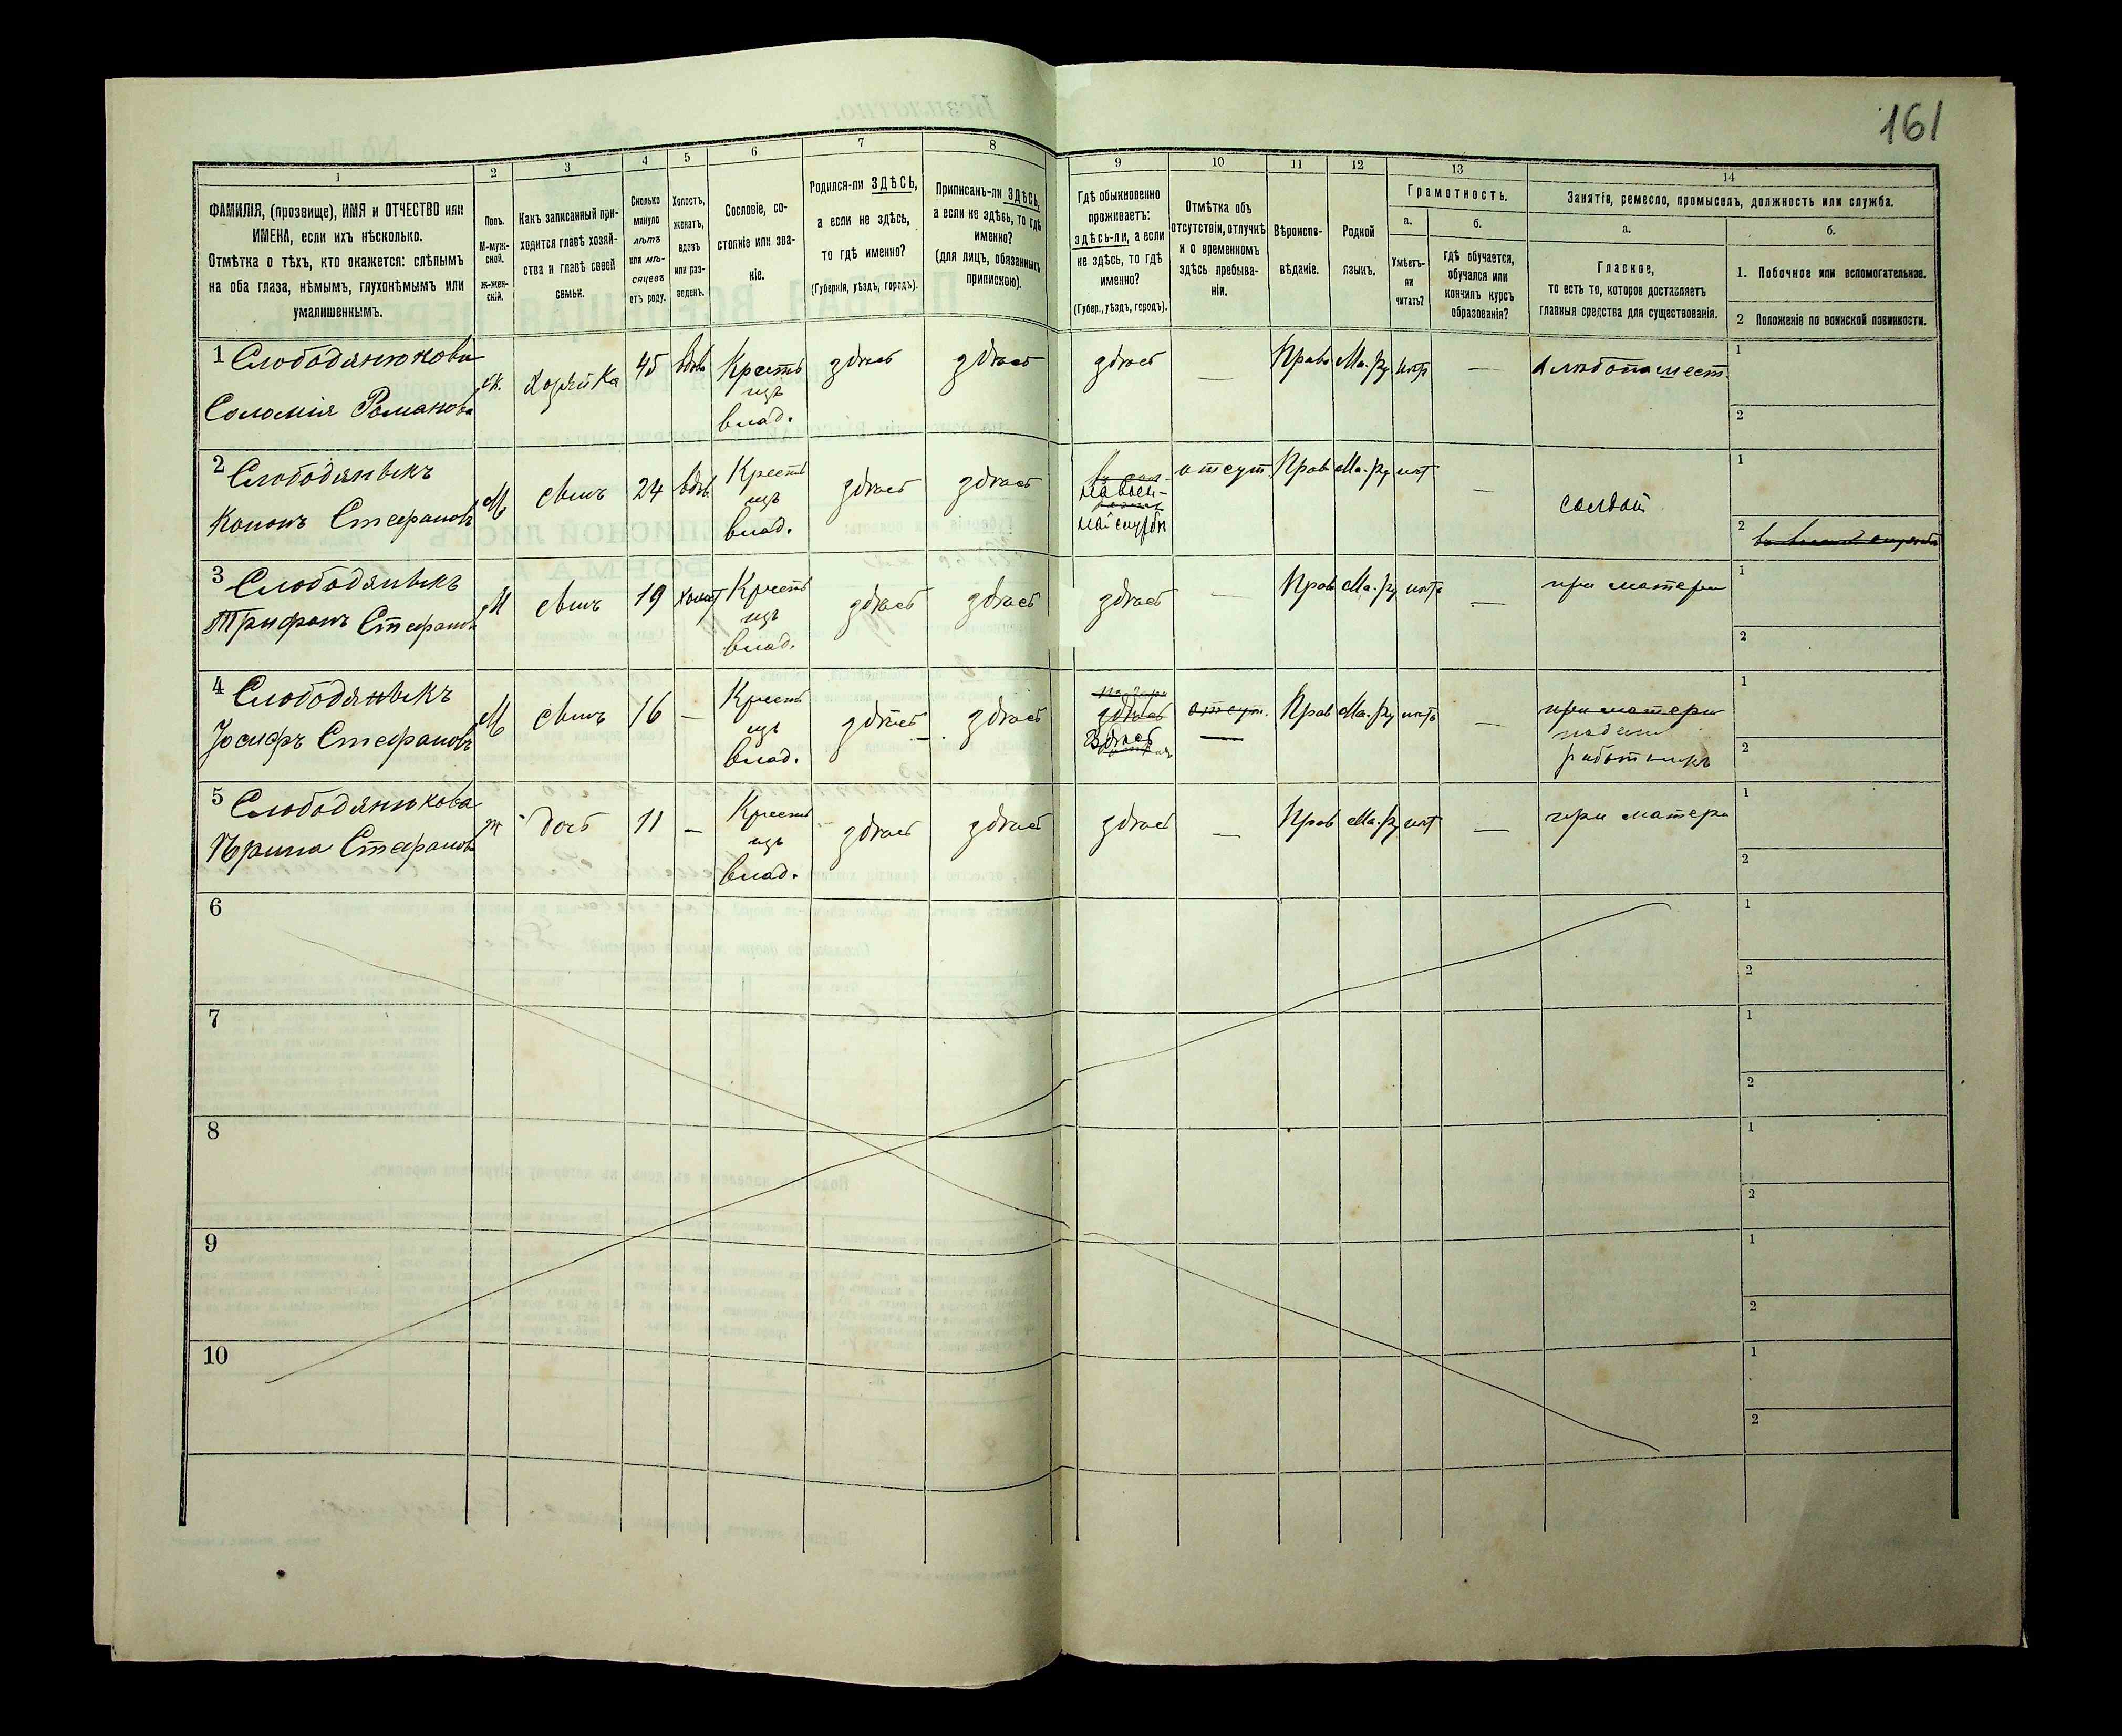 161
1
2
3
4
5
6
7
8
9
10
11
12
13
14
ФАМИЛІЯ, (прозвище), ИМЯ и ОТЧЕСТВО или
ИМЕНА, если ихъ нѣсколько.
Отмѣтка о тѣхъ, кто окажется: слѣпымъ
на оба глаза, нѣмымъ, глухонѣмымъ или
умалишеннымъ.
Полъ.
М-муж-
ской.
Ж-жен-
скій.
Какъ записанный при-
ходится главѣ хозяй-
ства и главѣ своей
семьи.
Сколько
минуло
лѣтъ
или мѣ-
сяцевъ
отъ роду.
Холостъ,
женатъ,
вдовъ
или раз-
веденъ.
Сословіе, со-
стояніе или зва-
ніе.
Родился-ли ЗДѢСЬ,
а если не здѣсь,
то гдѣ именно?
(Губернія, уѣздъ, городъ).
Приписанъ-ли ЗДѢСЬ,
а если не здѣсь, то гдѣ
именно?
(для лицъ, обязанныхъ
припискою).
Гдѣ обыкновенно
проживаетъ:
здѣсь-ли, а если
не здѣсь, то гдѣ
именно?
(Губер., уѣздъ, городъ).
Отмѣтка объ
отсутствіи, отлучкѣ
и о временномъ
здѣсь пребыва-
ніи.
Вѣроиспо-
вѣданіе.
Родной
языкъ.
Грамотность.
а.
Умѣетъ-
ли
читать?
б.
гдѣ обучается,
обучался или
кончилъ курсъ
образованія?
Занятія, ремесло, промыселъ, должность или служба.
а.
Главное,
то есть то, которое доставляетъ
главныя средства для существованія.
б.
1. Побочное или вспомогательное.
2 Положеніе по воинской повинности.
1 Слободянюкова
Соломія Романова
ж. хозяйка 45 вдва Крестъ
изъ
влад.
здѣсь здѣсь здѣсь — Прав Ма.-ру нѣт —
1
2
2 Слободянькъ
Кононъ Стефановъ
М сынъ 24 вдв. Крестъ
изъ
влад.
здѣсь здѣсь
на воен-
ной службѣ
отсут. Прав Ма.-ру нѣт — солдат
1
2
3 Слободянькъ
Трифонъ Стефановъ
М сынъ 19 холост Крестъ
изъ
влад.
здѣсь здѣсь здѣсь — Прав Ма.-ру нѣтъ — при матери
1
2
4 Слободянькъ
Іосифъ Стефановъ
М сынъ 16 — Крестъ
изъ
влад.
здѣсь здѣсь
здѣсь
Здѣсь
отсут.
—
Прав Ма.-ру нѣтъ —
при матери
работникъ
1
2
5 Слободянюкова
Ирина Стефанова
ж дочь 11 — Крестъ
изъ
влад.
здѣсь здѣсь здѣсь — Прав Ма.-ру нѣт — при матери
1
2
6
1
2
7
1
2
8
1
2
9
1
2
10
1
2